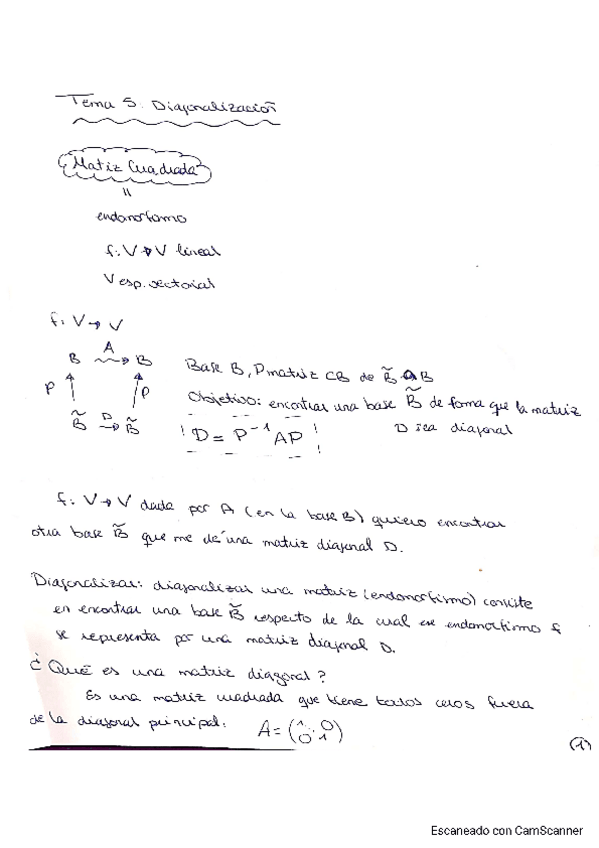 Tema 5. Diagonalización
Matiz Cuadrada
=
endomorfismo
f: V → V lineal
V esp. vectorial
f: V → V
A
B → B
P P
D
B̃ → B̃
Base B, P matriz CB de B̃ a B
Objetivo: encontrar una base B̃ de forma que la matriz
D sea diagonal
! D = P⁻¹ AP !
f: V → V dada por A (en la base B) quiero encontrar
otra base B̃ que me dé una matriz diagonal D.
Diagonalizar: diagonalizar una matriz (endomorfismo) consiste
en encontrar una base B̃ respecto de la cual ese endomorfismo f
se representa por una matriz diagonal D.
¿Qué es una matriz diagonal?
Es una matriz cuadrada que tiene todos ceros fuera
de la diagonal principal: A = (1 0 0 1)
(1)
Escaneado con CamScanner